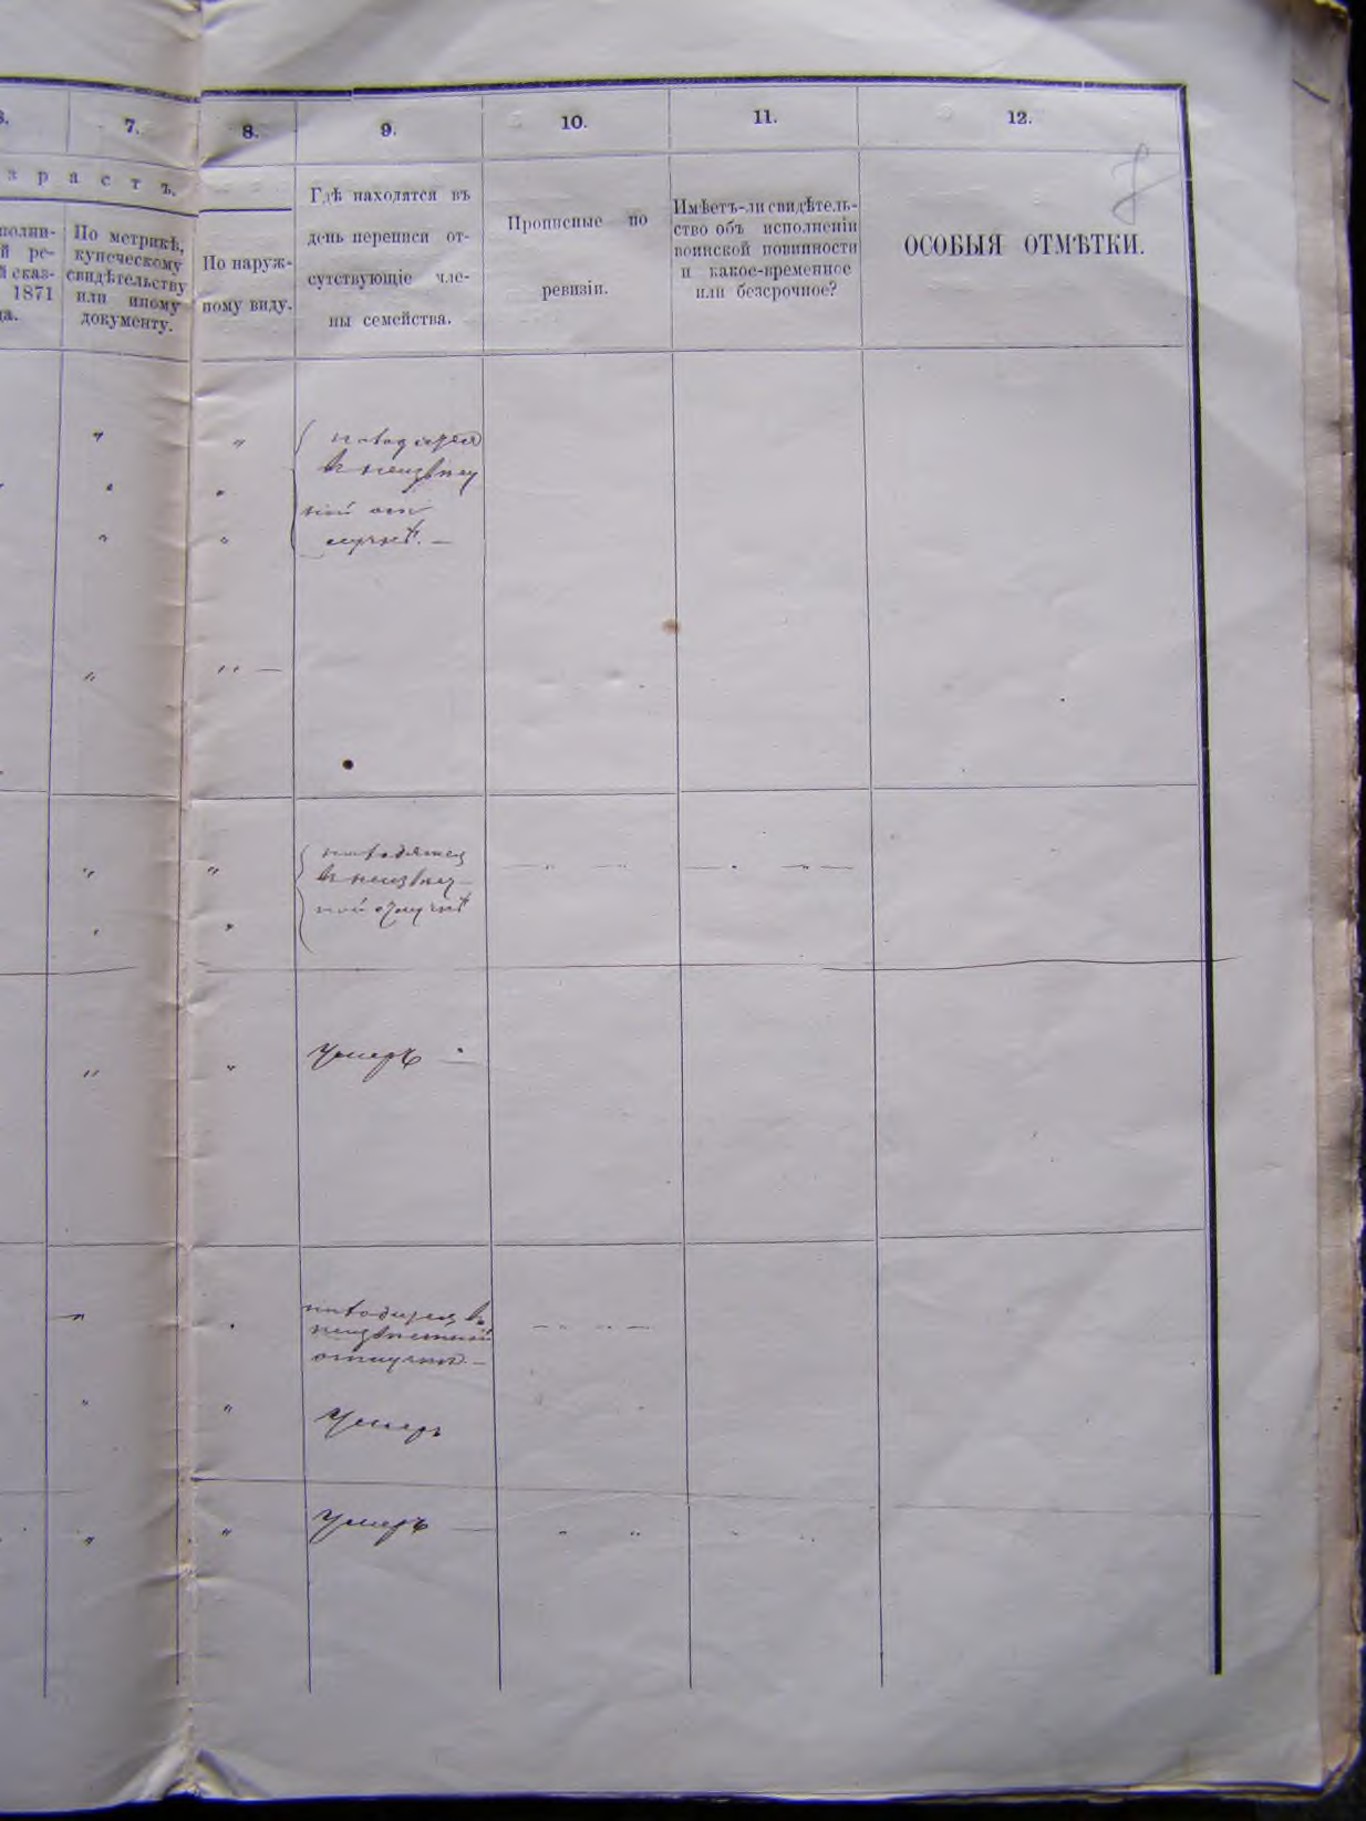 7. 8. 9. 10. 11. 12.
а р а с т ъ.
По метрикѣ,
купеческому
свидѣтельству
или иному
документу.
1871
По наруж-
ному виду.
Гдѣ находятся въ
день переписи от-
сутствующіе чле-
ны семейства.
Прописные по
ревизіи.
Имѣетъ-ли свидѣтель-
ство объ исполненіи
воинской повинности
и какое-временное
или безсрочное?
ОСОБЫЯ ОТМѢТКИ.
" " находятся
в неизвѣст
ной от
лучкѣ. —
" " —
" " находятся
в неизвѣст
ной отлучкѣ
" " умеръ —
" находится в
неизвѣстной
отлучкѣ. —
" " умеръ
" " умеръ — " " " "